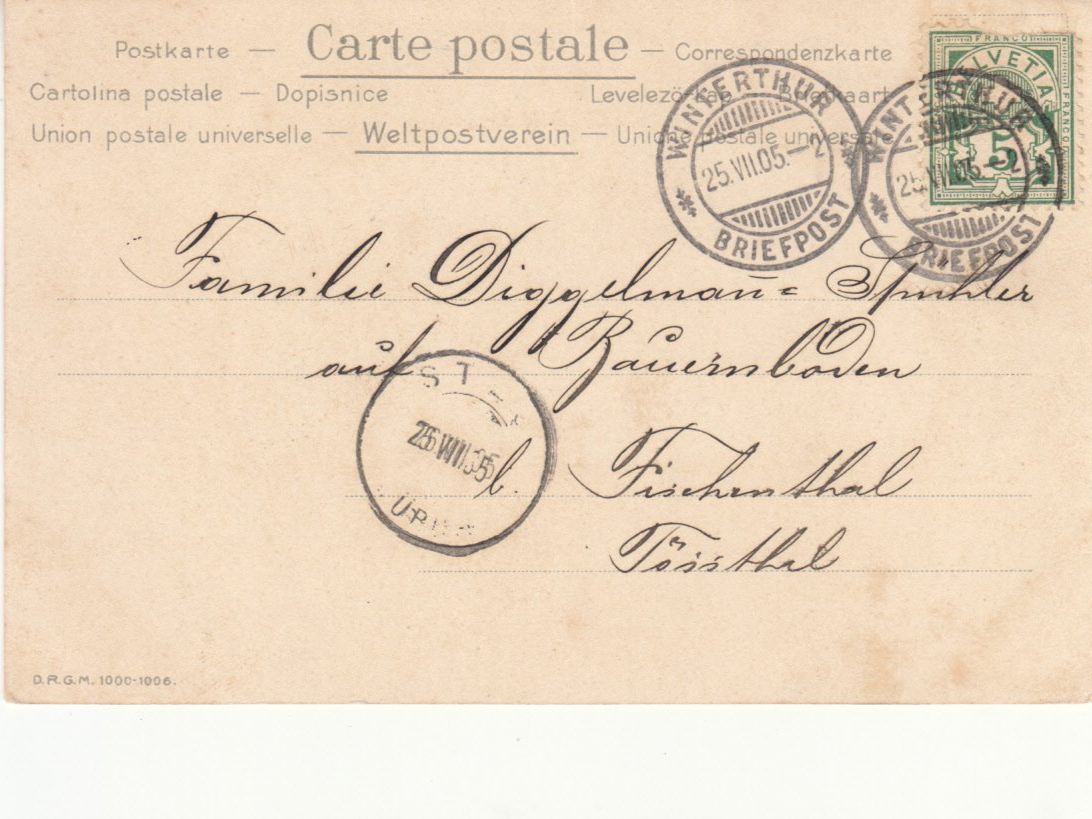 Postkarte — Carte postale — Correspondenzkarte
Cartolina postale — Dopisnice
Union postale universelle — Weltpostverein —
FRANCO
HELVETIA
FRANCO
5
WINTERTHUR
25.VII.05.–2
BRIEFPOST
WINTERTHUR
25.VII.05.–2
BRIEFPOST
Familie Diggelmañ= Spühler
auf Bauernboden
b. Fischenthal
Tössthal
D.R.G.M. 1000-1006.